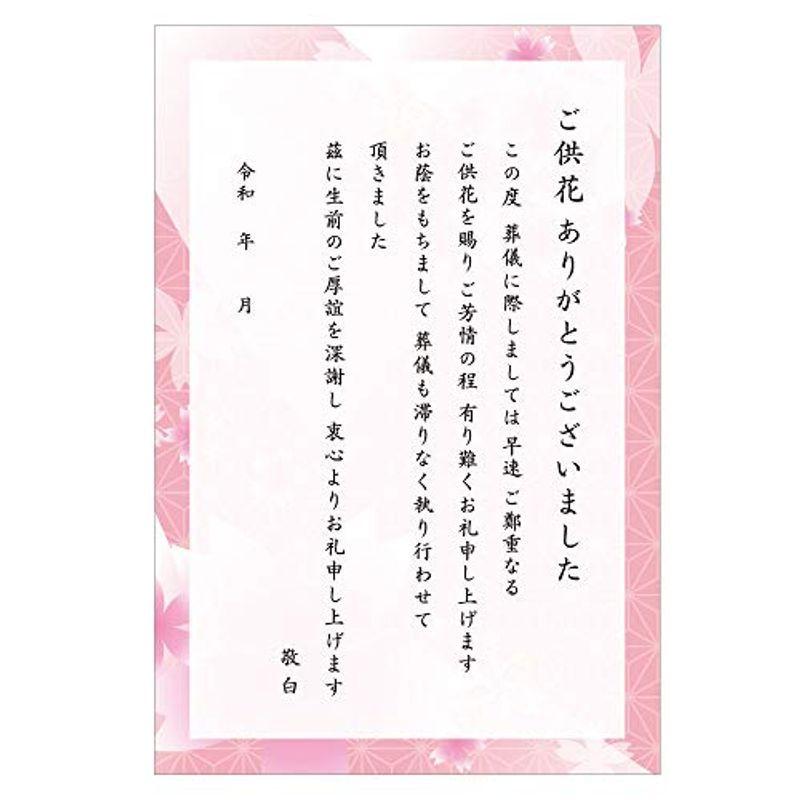 ご供花 ありがとうございました
この度 葬儀に際しましては 早速 ご鄭重なる
ご供花を賜り ご芳情の程 有り難くお礼申し上げます
お蔭をもちまして 葬儀も滞りなく執り行わせて
頂きました
茲に生前のご厚誼を深謝し 衷心よりお礼申し上げます
敬白
令和 年 月